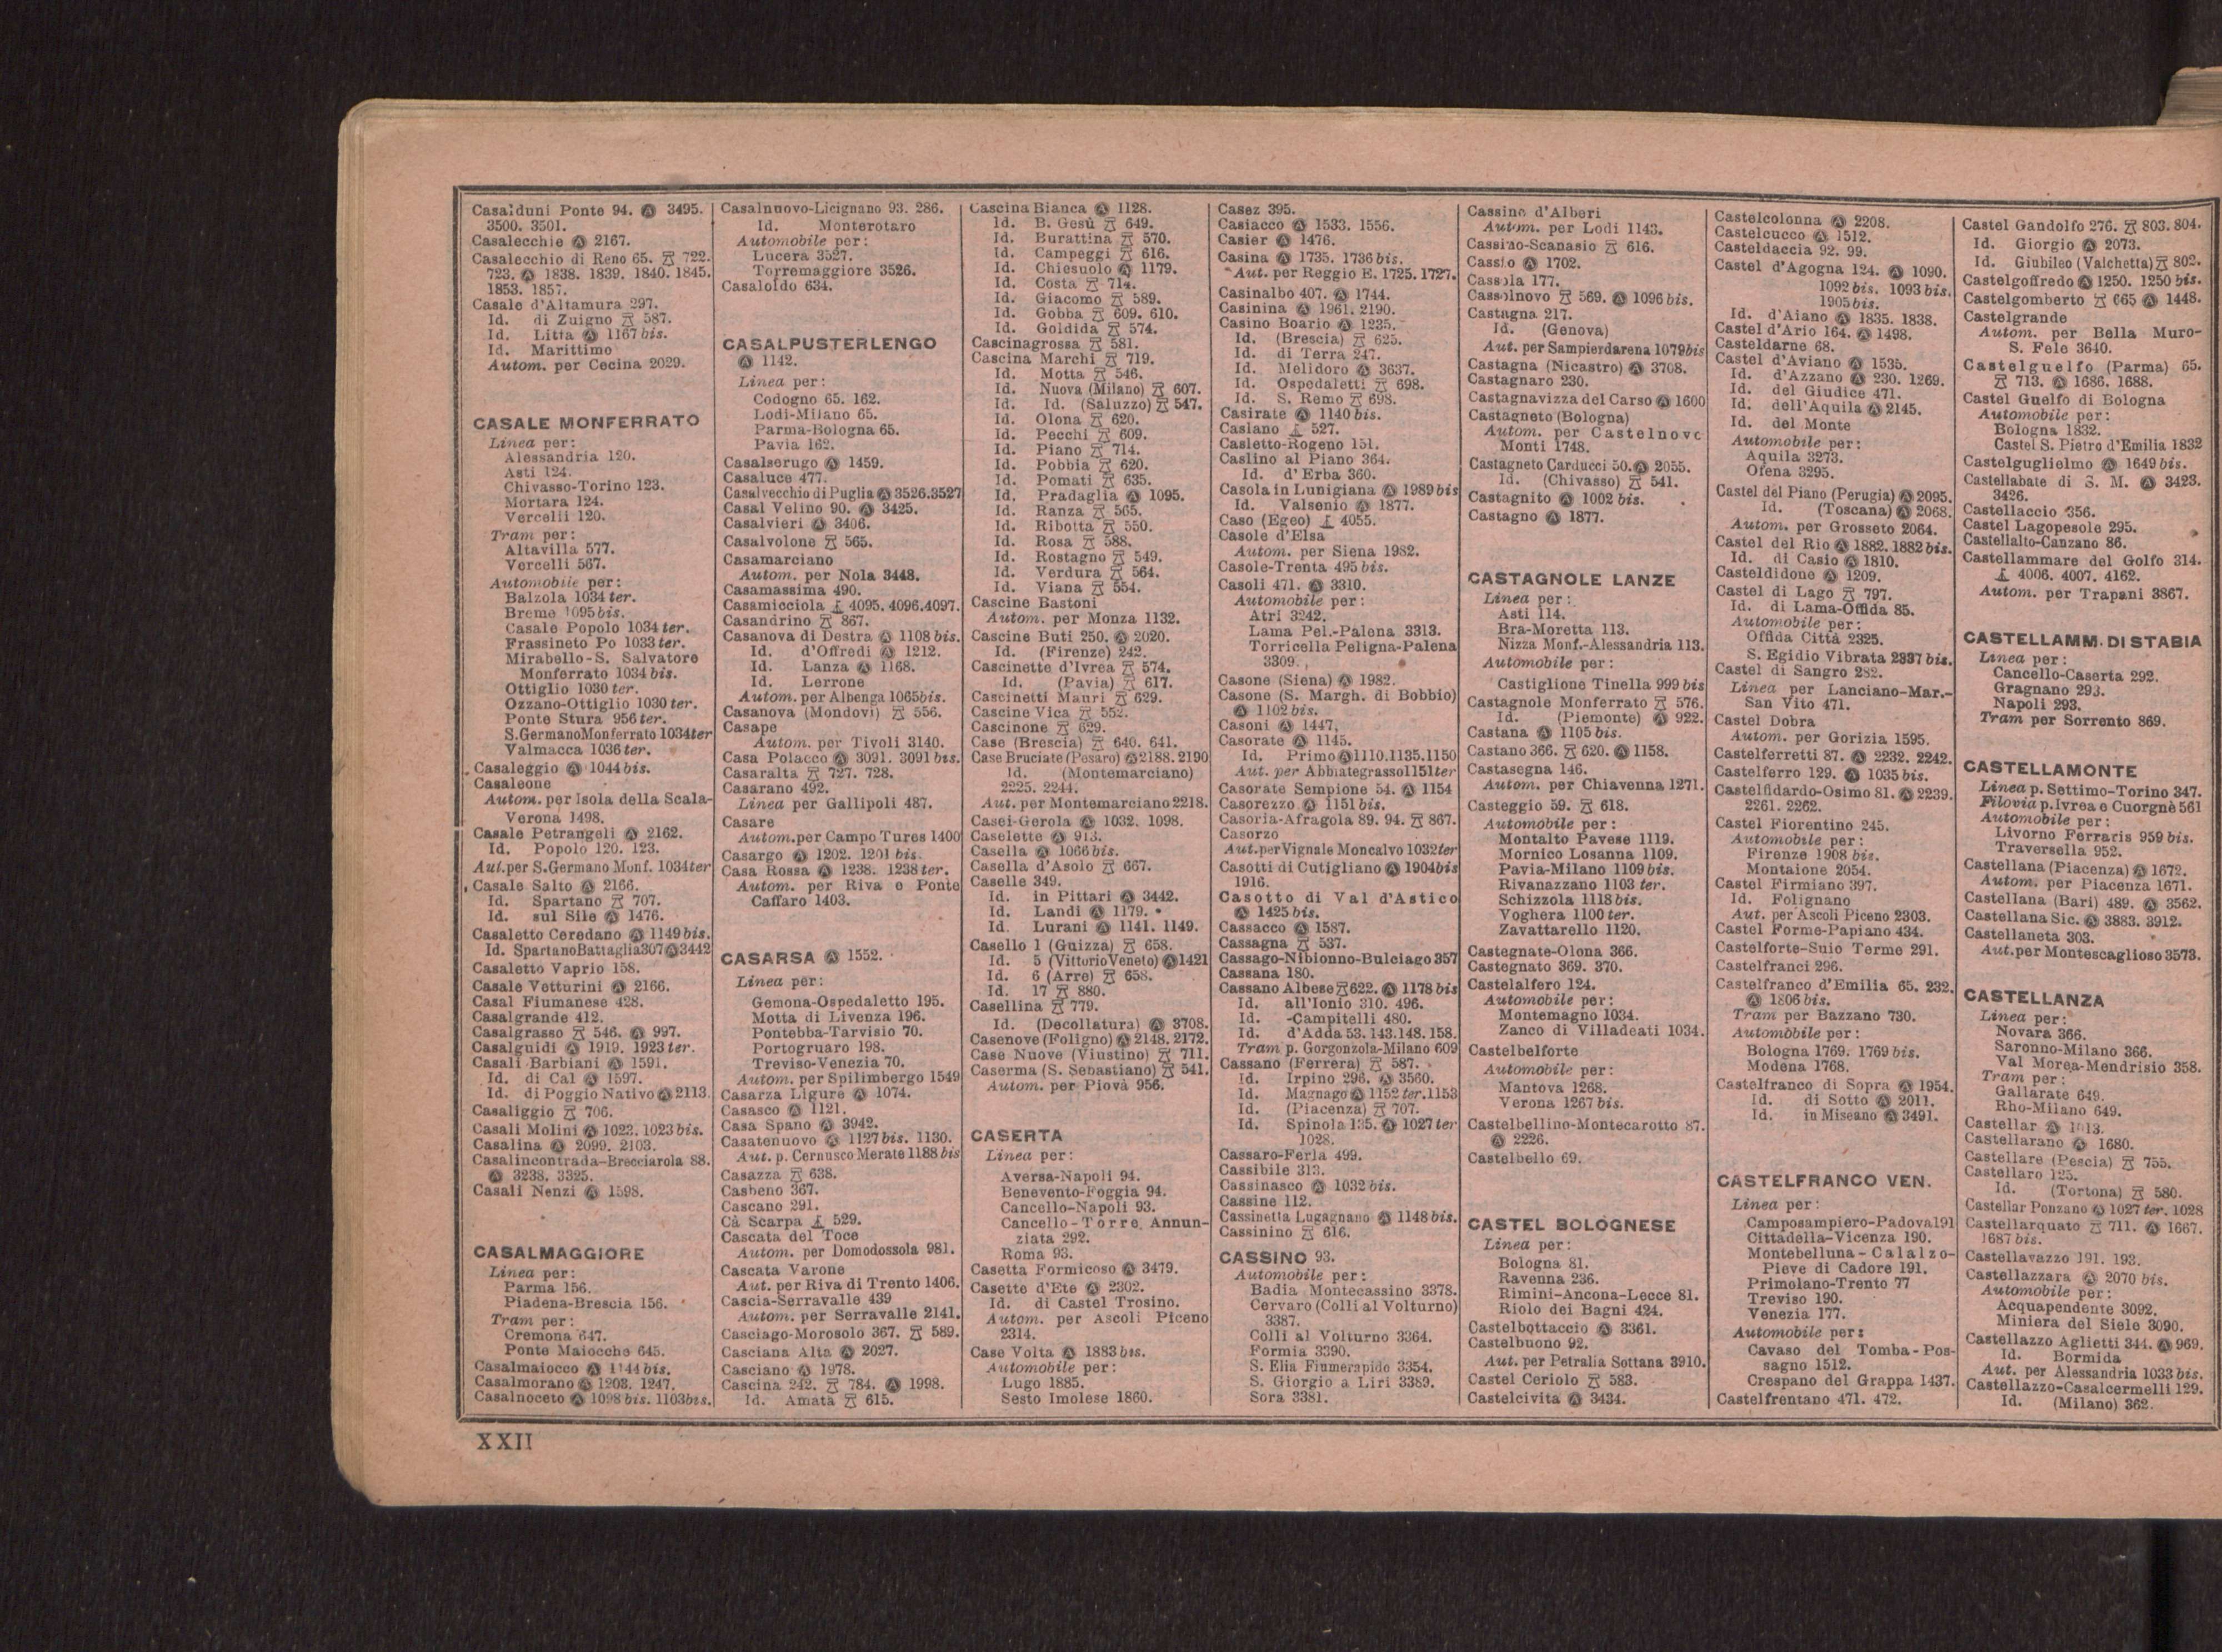 Casalduni Ponte 94. Ⓐ 3495.
3500. 3501.
Casalecchie Ⓐ 2167.
Casalecchio di Reno 65. 722.
723. Ⓐ 1838. 1839. 1840. 1845.
1853. 1857.
Casale d'Altamura 297.
Id. di Zuigno 587.
Id. Litta Ⓐ 1167 bis.
Id. Marittimo
Autom. per Cecina 2029.
CASALE MONFERRATO
Linea per:
Alessandria 120.
Asti 124.
Chivasso-Torino 123.
Mortara 124.
Vercelli 120.
Tram per:
Altavilla 577.
Vercelli 567.
Automobile per:
Balzola 1034 ter.
Breme 1095 bis.
Casale Popolo 1034 ter.
Frassineto Po 1033 ter.
Mirabello-S. Salvatore
Monferrato 1034 bis.
Ottiglio 1030 ter.
Ozzano-Ottiglio 1030 ter.
Ponte Stura 956 ter.
S.Germano Monferrato 1034 ter
Valmacca 1036 ter.
Casaleggio Ⓐ 1044 bis.
Casaleone
Autom. per Isola della Scala-
Verona 1498.
Casale Petrangeli Ⓐ 2162.
Id. Popolo 120. 123.
Aut. per S.Germano Monf. 1034 ter
Casale Salto Ⓐ 2166.
Id. Spartano 707.
Id. sul Sile Ⓐ 1476.
Casaletto Ceredano Ⓐ 1149 bis.
Id. Spartano Battaglia 307 Ⓐ 3442
Casaletto Vaprio 158.
Casale Vetturini Ⓐ 2166.
Casal Fiumanese 428.
Casalgrande 412.
Casalgrasso 546. Ⓐ 997.
Casalguidi Ⓐ 1919. 1923 ter.
Casali Barbiani Ⓐ 1591.
Id. di Cal Ⓐ 1597.
Id. di Poggio Nativo Ⓐ 2113.
Casaliggio 706.
Casali Molini Ⓐ 1023. 1023 bis.
Casalina Ⓐ 2099. 2103.
Casalincontrada-Brecciarola 88.
Ⓐ 3238. 3325.
Casali Nenzi Ⓐ 1598.
CASALMAGGIORE
Linea per:
Parma 156.
Piadena-Brescia 156.
Tram per:
Cremona 647.
Ponte Maiocche 645.
Casalmaiocco Ⓐ 1144 bis.
Casalmorano Ⓐ 1203. 1247.
Casalnoceto Ⓐ 1098 bis. 1103 bis.
Casalnuovo-Licignano 93. 286.
Id. Monterotaro
Automobile per:
Lucera 3527.
Torremaggiore 3526.
Casaloldo 634.
CASALPUSTERLENGO
Ⓐ 1142.
Linea per:
Codogno 65. 162.
Lodi-Milano 65.
Parma-Bologna 65.
Pavia 162.
Casalserugo Ⓐ 1459.
Casaluce 477.
Casalvecchio di Puglia Ⓐ 3526.3527
Casal Velino 90. Ⓐ 3425.
Casalvieri Ⓐ 3406.
Casalvolone 565.
Casamarciano
Autom. per Nola 3448.
Casamassima 490.
Casamicciola 4095. 4096.4097.
Casandrino 867.
Casanova di Destra Ⓐ 1108 bis.
Id. d'Offredi Ⓐ 1212.
Id. Lanza Ⓐ 1168.
Id. Lerrone
Autom. per Albenga 1065 bis.
Casanova (Mondovì) 556.
Casape
Autom. per Tivoli 3140.
Casa Polacco Ⓐ 3091. 3091 bis.
Casaralta 727. 728.
Casarano 492.
Linea per Gallipoli 487.
Casare
Autom. per Campo Tures 1400
Casargo Ⓐ 1202. 1201 bis.
Casa Rossa Ⓐ 1238. 1238 ter.
Autom. per Riva e Ponte
Caffaro 1403.
CASARSA Ⓐ 1552.
Linea per:
Gemona-Ospedaletto 195.
Motta di Livenza 196.
Pontebba-Tarvisio 70.
Portogruaro 198.
Treviso-Venezia 70.
Autom. per Spilimbergo 1549
Casarza Ligure Ⓐ 1074.
Casasco Ⓐ 1121.
Casa Spano Ⓐ 3942.
Casatenuovo Ⓐ 1127 bis. 1130.
Aut. p. Cernusco Merate 1188 bis
Casazza 638.
Casbeno 367.
Cascano 291.
Cà Scarpa 529.
Cascata del Toce
Autom. per Domodossola 981.
Cascata Varone
Aut. per Riva di Trento 1406.
Cascia-Serravalle 439
Autom. per Serravalle 2141.
Casciago-Morosolo 367. 589.
Casciana Alta Ⓐ 2027.
Casciano Ⓐ 1978.
Cascina 242. 784. Ⓐ 1998.
Id. Amata 615.
Cascina Bianca Ⓐ 1128.
Id. B. Gesù 649.
Id. Burattina 570.
Id. Campeggi 616.
Id. Chiesuolo Ⓐ 1179.
Id. Costa 714.
Id. Giacomo 589.
Id. Gobba 609. 610.
Id. Goldida 574.
Cascinagrossa 581.
Cascina Marchi 719.
Id. Motta 546.
Id. Nuova (Milano) 607.
Id. Id. (Saluzzo) 547.
Id. Olona 620.
Id. Pecchi 609.
Id. Piano 714.
Id. Pobbia 620.
Id. Pomati 635.
Id. Pradaglia Ⓐ 1095.
Id. Ranza 565.
Id. Ribotta 550.
Id. Rosa 588.
Id. Rostagno 549.
Id. Verdura 564.
Id. Viana 554.
Cascine Bastoni
Autom. per Monza 1132.
Cascine Buti 250. Ⓐ 2020.
Id. (Firenze) 242.
Cascinette d'Ivrea 574.
Id. (Pavia) 617.
Cascinetti Mauri 629.
Cascine Vica 552.
Cascinone 629.
Case (Brescia) 640. 641.
Case Bruciate (Pesaro) Ⓐ 2188. 2190
Id. (Montemarciano)
2225. 2244.
Aut. per Montemarciano 2218.
Casei-Gerola Ⓐ 1032. 1098.
Caselette Ⓐ 913.
Casella Ⓐ 1066 bis.
Casella d'Asolo 667.
Caselle 349.
Id. in Pittari Ⓐ 3442.
Id. Landi Ⓐ 1179.
Id. Lurani Ⓐ 1141. 1149.
Casello 1 (Guizza) 658.
Id. 5 (Vittorio Veneto) Ⓐ 1421
Id. 6 (Arre) 658.
Id. 17 880.
Casellina 779.
Id. (Decollatura) Ⓐ 3708.
Casenove (Foligno) Ⓐ 2148. 2172.
Case Nuove (Viustino) 711.
Caserma (S. Sebastiano) 541.
Autom. per Piovà 956.
CASERTA
Linea per:
Aversa-Napoli 94.
Benevento-Foggia 94.
Cancello-Napoli 93.
Cancello-Torre Annun-
ziata 292.
Roma 93.
Casetta Formicoso Ⓐ 3479.
Casette d'Ete Ⓐ 2302.
Id. di Castel Trosino.
Autom. per Ascoli Piceno
2314.
Case Volta Ⓐ 1883 bis.
Automobile per:
Lugo 1885.
Sesto Imolese 1860.
Casez 395.
Casiacco Ⓐ 1533. 1556.
Casier Ⓐ 1476.
Casina Ⓐ 1735. 1736 bis.
Aut. per Reggio E. 1725. 1727.
Casinalbo 407. Ⓐ 1744.
Casinina Ⓐ 1961. 2190.
Casino Boario Ⓐ 1235.
Id. (Brescia) 625.
Id. di Terra 247.
Id. Melidoro Ⓐ 3637.
Id. Ospedaletti 698.
Id. S. Remo 698.
Casirate Ⓐ 1140 bis.
Casiano 527.
Casletto-Rogeno 151.
Caslino al Piano 364.
Id. d'Erba 360.
Casola in Lunigiana Ⓐ 1989 bis
Id. Valsenio Ⓐ 1877.
Caso (Egeo) 4055.
Casole d'Elsa
Autom. per Siena 1982.
Casole-Trenta 495 bis.
Casoli 471. Ⓐ 3310.
Automobile per:
Atri 3242.
Lama Pel.-Palena 3313.
Torricella Peligna-Palena
3309.
Casone (Siena) Ⓐ 1982.
Casone (S. Margh. di Bobbio)
Ⓐ 1102 bis.
Casoni Ⓐ 1447.
Casorate Ⓐ 1145.
Id. Primo Ⓐ 1110.1135.1150
Aut. per Abbiategrasso 1151 ter
Casorate Sempione 54. Ⓐ 1154
Casorezzo Ⓐ 1151 bis.
Casoria-Afragola 89. 94. 867.
Casorzo
Aut. per Vignale Moncalvo 1032 ter
Casotti di Cutigliano Ⓐ 1904 bis
1916.
Casotto di Val d'Astico
Ⓐ 1425 bis.
Cassacco Ⓐ 1587.
Cassagna 537.
Cassago-Nibionno-Bulciago 357
Cassana 180.
Cassano Albese 622. Ⓐ 1178 bis
Id. all'Ionio 310. 496.
Id. -Campitelli 480.
Id. d'Adda 53. 143. 148. 158.
Tram p. Gorgonzola-Milano 609
Cassano (Ferrera) 587.
Id. Irpino 296. Ⓐ 3560.
Id. Magnago Ⓐ 1152 ter.1153
Id. (Piacenza) 707.
Id. Spinola 135. Ⓐ 1027 ter
1028.
Cassaro-Ferla 499.
Cassibile 313.
Cassinasco Ⓐ 1032 bis.
Cassine 112.
Cassinetta Lugagnano Ⓐ 1148 bis.
Cassinino 616.
CASSINO 93.
Automobile per:
Badia Montecassino 3378.
Cervaro (Colli al Volturno)
3387.
Colli al Volturno 3364.
Formia 3390.
S. Elia Fiumerapido 3354.
S. Giorgio a Liri 3389.
Sora 3381.
Cassino d'Alberi
Autom. per Lodi 1143.
Cassino-Scanasio 616.
Cassio Ⓐ 1702.
Cassola 177.
Cassolnovo 569. Ⓐ 1096 bis.
Castagna 217.
Id. (Genova)
Aut. per Sampierdarena 1079 bis
Castagna (Nicastro) Ⓐ 3708.
Castagnaro 230.
Castagnavizza del Carso Ⓐ 1600
Castagneto (Bologna)
Autom. per Castelnovo
Monti 1748.
Castagneto Carducci 50. Ⓐ 2055.
Id. (Chivasso) 541.
Castagnito Ⓐ 1002 bis.
Castagno Ⓐ 1877.
CASTAGNOLE LANZE
Linea per:
Asti 114.
Bra-Moretta 113.
Nizza Monf.-Alessandria 113.
Automobile per:
Castiglione Tinella 999 bis
Castagnole Monferrato 576.
Id. (Piemonte) Ⓐ 922.
Castana Ⓐ 1105 bis.
Castano 366. 620. Ⓐ 1158.
Castasegna 146.
Autom. per Chiavenna 1271.
Casteggio 59. 618.
Automobile per:
Montalto Pavese 1119.
Mornico Losanna 1109.
Pavia-Milano 1109 bis.
Rivanazzano 1103 ter.
Schizzola 1118 bis.
Voghera 1100 ter.
Zavattarello 1120.
Castegnate-Olona 366.
Castegnato 369. 370.
Castelalfero 124.
Automobile per:
Montemagno 1034.
Zanco di Villadeati 1034.
Castelbelforte
Automobile per:
Mantova 1268.
Verona 1267 bis.
Castelbellino-Montecarotto 87.
Ⓐ 2226.
Castelbello 69.
CASTEL BOLOGNESE
Linea per:
Bologna 81.
Ravenna 236.
Rimini-Ancona-Lecce 81.
Riolo dei Bagni 424.
Castelbottaccio Ⓐ 3361.
Castelbuono 92.
Aut. per Petralia Sottana 3910.
Castel Ceriolo 583.
Castelcivita Ⓐ 3434.
Castelcolonna Ⓐ 2208.
Castelcucco Ⓐ 1512.
Casteldaccia 92. 99.
Castel d'Agogna 124. Ⓐ 1090.
1092 bis. 1093 bis.
1905 bis.
Id. d'Aiano Ⓐ 1835. 1838.
Castel d'Ario 164. Ⓐ 1498.
Casteldarne 68.
Castel d'Aviano Ⓐ 1535.
Id. d'Azzano Ⓐ 230. 1269.
Id. del Giudice 471.
Id. dell'Aquila Ⓐ 2145.
Id. del Monte
Automobile per:
Aquila 3273.
Ofena 3295.
Castel del Piano (Perugia) Ⓐ 2095.
Id. (Toscana) Ⓐ 2068.
Autom. per Grosseto 2064.
Castel del Rio Ⓐ 1882. 1882 bis.
Id. di Casio Ⓐ 1810.
Casteldidone Ⓐ 1209.
Castel di Lago 797.
Id. di Lama-Offida 85.
Automobile per:
Offida Città 2325.
S. Egidio Vibrata 2337 bis.
Castel di Sangro 282.
Linea per Lanciano-Mar.-
San Vito 471.
Castel Dobra
Autom. per Gorizia 1595.
Castelferretti 87. Ⓐ 2232. 2242.
Castelferro 129. Ⓐ 1035 bis.
Castelfidardo-Osimo 81. Ⓐ 2239.
2261. 2262.
Castel Fiorentino 245.
Automobile per:
Firenze 1908 bis.
Montaione 2054.
Castel Firmiano 397.
Id. Folignano
Aut. per Ascoli Piceno 2303.
Castel Forme-Papiano 434.
Castelforte-Suio Terme 291.
Castelfranci 296.
Castelfranco d'Emilia 65. 232.
Ⓐ 1806 bis.
Tram per Bazzano 730.
Automobile per:
Bologna 1769. 1769 bis.
Modena 1768.
Castelfranco di Sopra Ⓐ 1954.
Id. di Sotto Ⓐ 2011.
Id. in Miscano Ⓐ 3491.
CASTELFRANCO VEN.
Linea per:
Camposampiero-Padova 191
Cittadella-Vicenza 190.
Montebelluna-Calalzo-
Pieve di Cadore 191.
Primolano-Trento 77
Treviso 190.
Venezia 177.
Automobile per:
Cavaso del Tomba-Pos-
sagno 1512.
Crespano del Grappa 1437.
Castelfrentano 471. 472.
Castel Gandolfo 276. 803. 804.
Id. Giorgio Ⓐ 2073.
Id. Giubileo (Valchetta) 802.
Castelgoffredo Ⓐ 1250. 1250 bis.
Castelgomberto 665 Ⓐ 1448.
Castelgrande
Autom. per Bella Muro-
S. Fele 3640.
Castelguelfo (Parma) 65.
713. Ⓐ 1686. 1688.
Castel Guelfo di Bologna
Automobile per:
Bologna 1832.
Castel S. Pietro d'Emilia 1832
Castelguglielmo Ⓐ 1649 bis.
Castellabate di S. M. Ⓐ 3423.
3426.
Castellaccio 356.
Castel Lagopesole 295.
Castellalto-Canzano 86.
Castellammare del Golfo 314.
4006. 4007. 4162.
Autom. per Trapani 3867.
CASTELLAMM. DI STABIA
Linea per:
Cancello-Caserta 292.
Gragnano 293.
Napoli 293.
Tram per Sorrento 869.
CASTELLAMONTE
Linea p. Settimo-Torino 347.
Filovia p. Ivrea e Cuorgnè 561
Automobile per:
Livorno Ferraris 959 bis.
Traversella 952.
Castellana (Piacenza) Ⓐ 1672.
Autom. per Piacenza 1671.
Castellana (Bari) 489. Ⓐ 3562.
Castellana Sic. Ⓐ 3883. 3912.
Castellaneta 303.
Aut. per Montescaglioso 3573.
CASTELLANZA
Linea per:
Novara 366.
Saronno-Milano 366.
Val Morea-Mendrisio 358.
Tram per:
Gallarate 649.
Rho-Milano 649.
Castellar Ⓐ 1013.
Castellarano Ⓐ 1680.
Castellare (Pescia) 755.
Castellaro 125.
Id. (Tortona) 580.
Castellar Ponzano Ⓐ 1027 ter. 1028
Castellarquato 711. Ⓐ 1667.
1687 bis.
Castellavazzo 191. 193.
Castellazzara Ⓐ 2070 bis.
Automobile per:
Acquapendente 3092.
Miniera del Siele 3090.
Castellazzo Aglietti 344. Ⓐ 969.
Id. Bormida
Aut. per Alessandria 1033 bis.
Castellazzo-Casalcermelli 129.
Id. (Milano) 362.
XXII